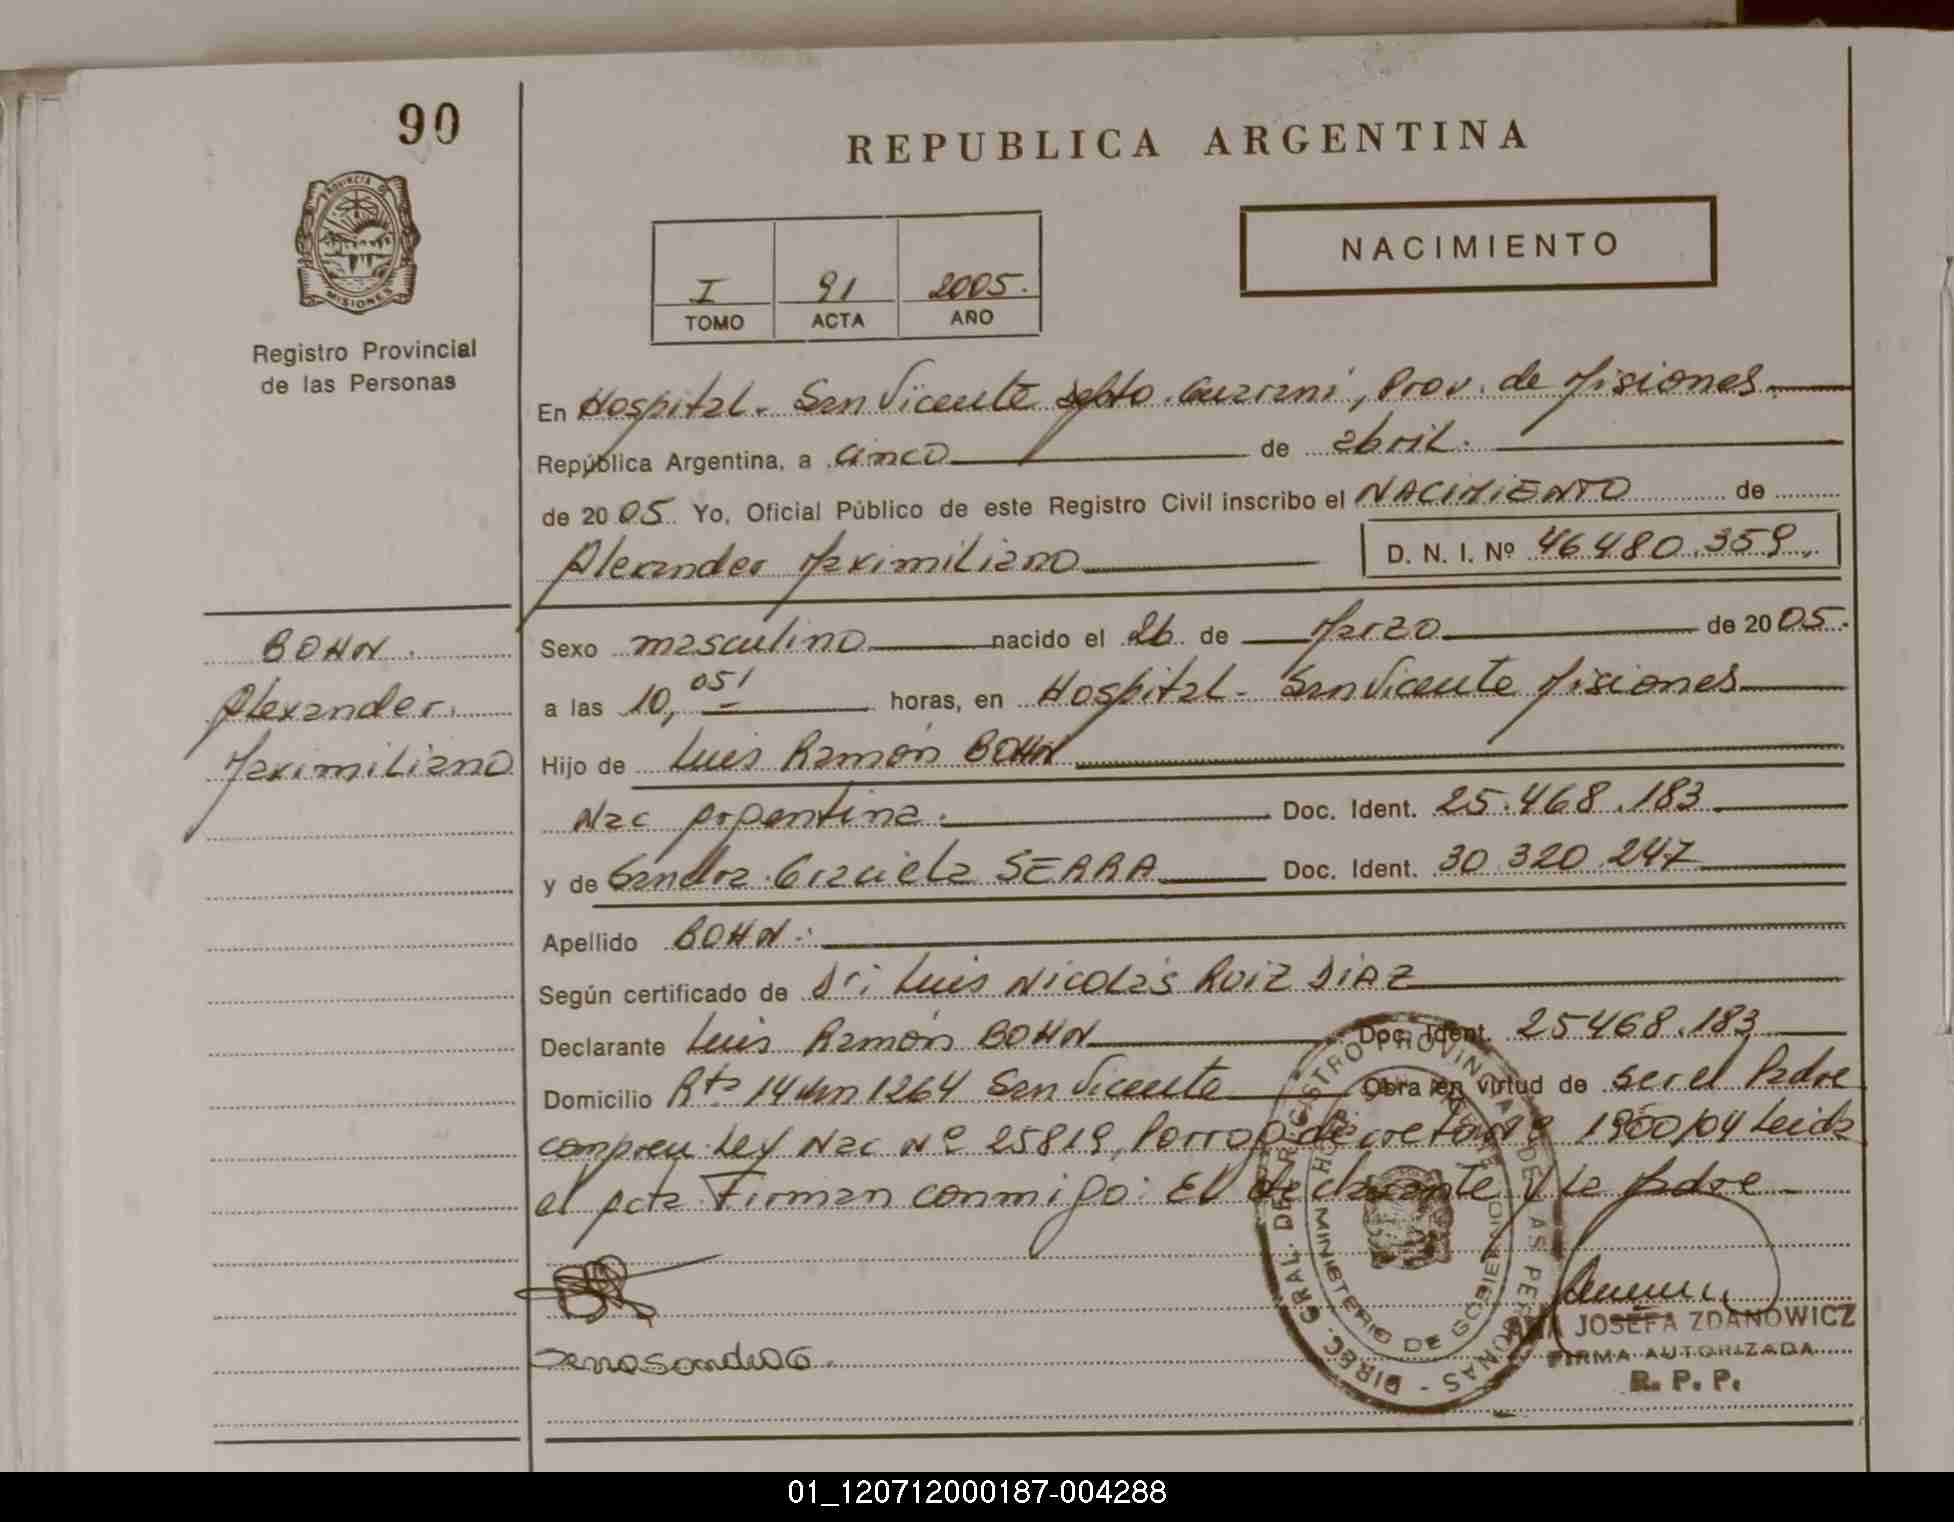 90
REPUBLICA ARGENTINA
PROVINCIA DE
MISIONES
Registro Provincial
de las Personas
NACIMIENTO
I 91 2005.
TOMO ACTA AÑO
En Hospital. San Vicente Dpto. Guarani, Prov. de Misiones.
República Argentina, a cinco de abril.
de 2005. Yo, Oficial Público de este Registro Civil inscribo el NACIMIENTO de
Alexander Maximiliano D. N. I. Nº 46.480.359.
BOHN.
Alexander.
Maximiliano
Sexo masculino nacido el 26 de Marzo de 2005.
a las 10, 05' horas, en Hospital - San Vicente Misiones
Hijo de Luis Ramón BOHN
Nac Argentina. Doc. Ident. 25.468.183
y de Sandra Graciela SERRA Doc. Ident. 30.320.247
Apellido BOHN.
Según certificado de Dr: Luis Nicolás RUIZ DIAZ
Declarante Luis Ramón BOHN Doc. Ident. 25468.183
Domicilio Rta 14 km 1264 San Vicente Obra en virtud de ser el Padre
Ley Nac Nº 25819, decreto 1900/04 Leida
el Acta Firman conmigo: El declarante y la Madre
DIREC. GRAL. DEL REGISTRO PROVINCIAL DE LAS PERSONAS -
MINISTERIO DE GOBIERNO
ANA JOSEFA ZDANOWICZ
FIRMA AUTORIZADA
R. P. P.
01_120712000187-004288